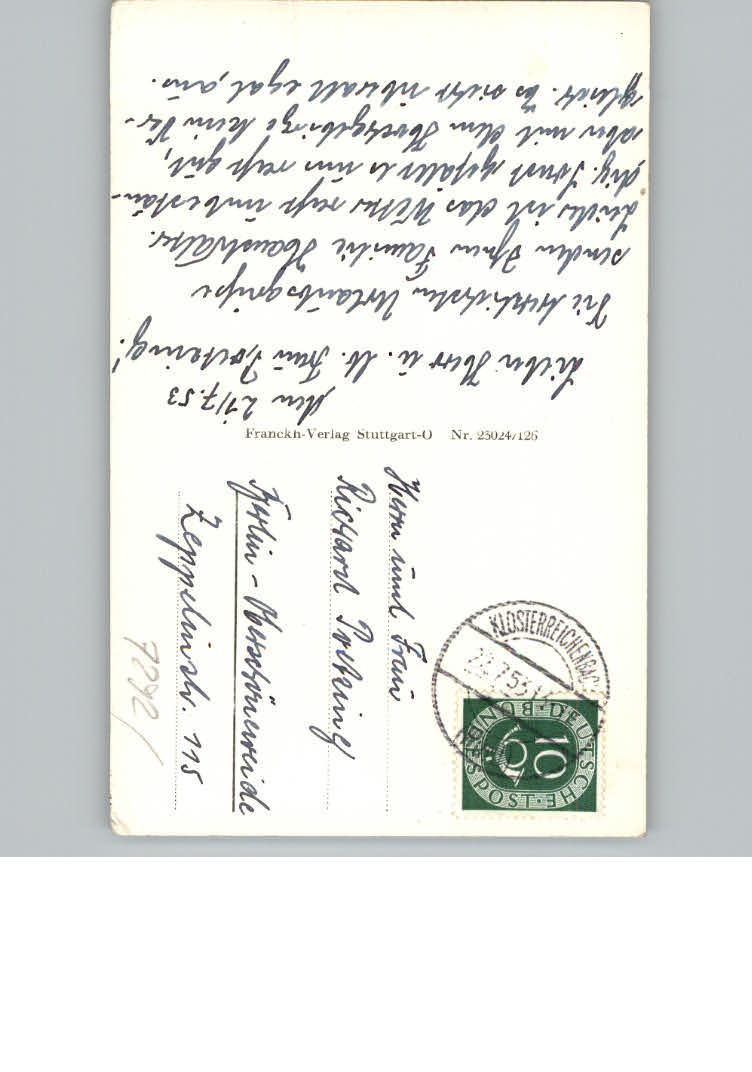 den 21/7.53
Lieber Herr u. lb. Frau
Die herzlichsten Urlaubsgrüße
senden Ihnen Familie
Leider ist das Wetter sehr unbestän-
dig. Sonst gefällt es uns sehr gut,
aber mit dem Hochgebirge kein Ver-
gleich. Es nicht überall egal, aus.
Franckh-Verlag Stuttgart-O Nr. 23024/126
Herrn und Frau
Richard
Berlin - Oberschöneweide
Zeppelinstr. 115
7292/
KLOSTERREICHENBACH
DEUTSCHE BUNDESPOST
10